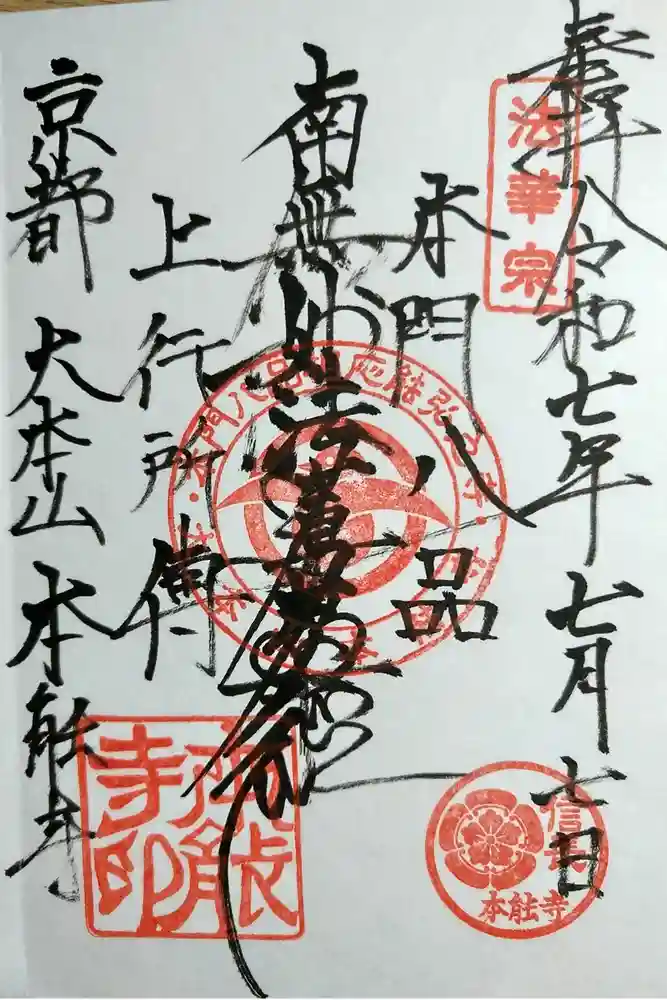 奉拝 令和七年七月七日
本門八品
南無妙法蓮華経
上行所傳
京都 大本山 本能寺
法華宗
本能寺印
信長
本能寺